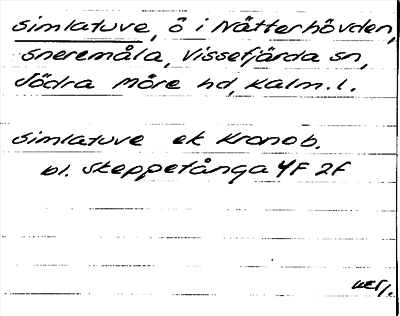 Simlatuve, ö i Nätterhövden,
Sneremåla, Vissefjärda sn,
Södra Möre hd, Kalm. l.
Simlatuve ek Kronob.
bl. Skeppetånga 4F 2F